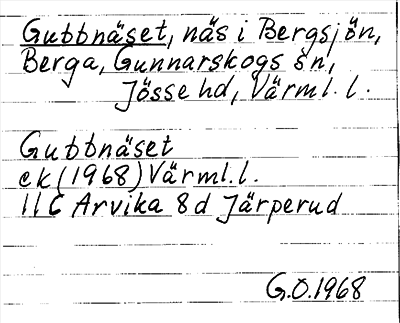 Gubbnäset, näs i Bergsjön,
Berga, Gunnarskogs sn,
Jösse hd, Värml. l.
Gubbnäset
ek (1968) Värml. l.
11C Arvika 8d Järperud
G.O. 1968